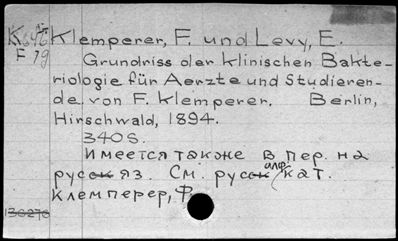 Klemperer, F. und Levy, E.
F 79
Grundriss der klinischen Bakte-
riologie für Aerzte und Studieren-
de von F. Klemperer. Berlin,
Hirschwald, 1894.
340 S.
Имеется также в пер. на
русск яз. См. русск алф. кат.
Клемперер, Ф.
136276